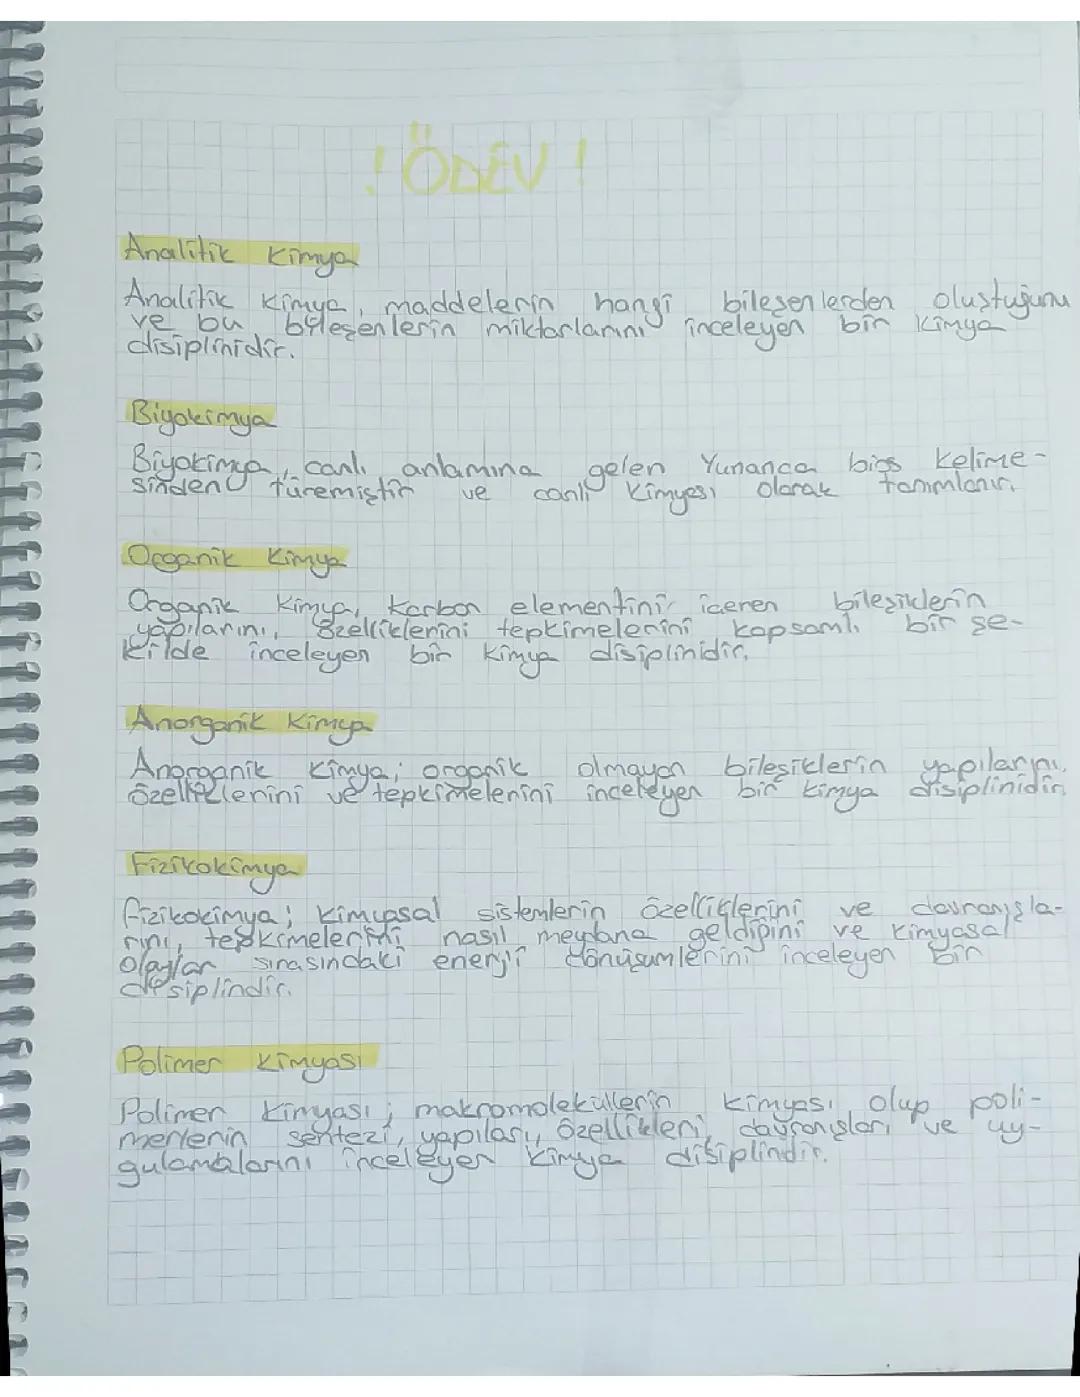 ! ÖDEV !
Analitik Kimya
Analitik Kimya, maddelerin hangi bileşenlerden oluştuğunu
ve bu bileşenlerin miktarlarını inceleyen bir kimya
disiplinidir.
Biyokimya
Biyokimya, canlı anlamına gelen Yunanca bios kelime-
sinden türemiştir ve canlı kimyası olarak tanımlanır.
Organik Kimya
Organik Kimya, karbon elementini içeren bileşiklerin
yapılarını, özelliklerini tepkimelerini kapsamlı bir şe-
kilde inceleyen bir kimya disiplinidir.
Anorganik Kimya
Anorganik Kimya; organik olmayan bileşiklerin yapılarını,
özelliklerini ve tepkimelerini inceleyen bir kimya disiplinidir.
Fizikokimya
Fizikokimya; kimyasal sistemlerin özelliklerini ve davranışla-
rını, tepkimelerini nasıl meydana geldiğini ve kimyasal
olaylar sırasındaki enerji dönüşümlerini inceleyen bir
disiplindir.
Polimer Kimyası
Polimer Kimyası; makromoleküllerin kimyası olup poli-
merlerin sentezi, yapıları, özellikleri, davranışları ve uy-
gulamalarını inceleyen kimya disiplindir.